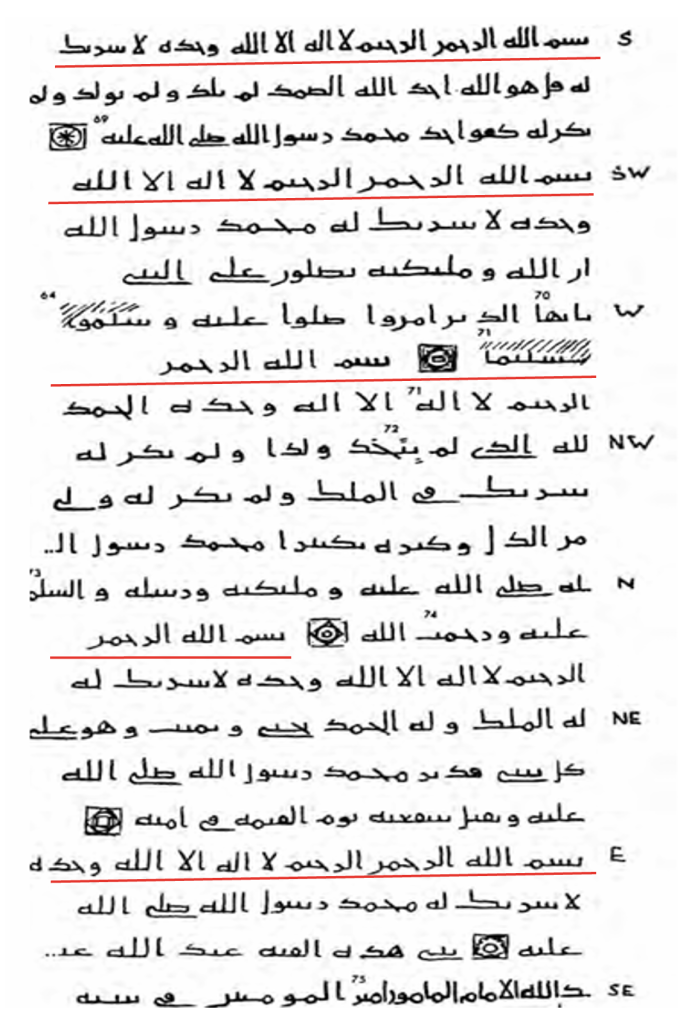 S بسم الله الرحمن الرحيم لا اله الا الله وحده لا شريك
له قل هو الله احد الله الصمد لم يلد و لم يولد و لم
يكن له كفوا احد محمد رسول الله صلى الله عليه 69
SW بسم الله الرحمن الرحيم لا اله الا الله
وحده لا شريك له محمد رسول الله
ان الله و ملئكته يصلون على النبي
W يايها 70 الذين امنوا صلوا عليه و سلموا 64
تسليما 71 بسم الله الرحمن
الرحيم لا اله 71 الا الله وحده الحمد
NW لله الذي لم يتخذ 72 ولدا و لم يكن له
شريك في الملك و لم يكن له ولي
من الذل وكبره تكبيرا محمد رسول ال..
N لله صلى الله عليه و ملئكته ورسله و السلم 73
عليه ورحمت 74 الله بسم الله الرحمن
الرحيم لا اله الا الله وحده لا شريك له
NE له الملك و له الحمد يحيي و يميت و هو على
كل شي قدير محمد رسول الله صلى الله
عليه و يقبل شفعته يوم القيمه في امته
E بسم الله الرحمن الرحيم لا اله الا الله وحده
لا شريك له محمد رسول الله صلى الله
عليه بنى هذه القبه عبد الله عبـ..
SE ـد الله الامام المامون امير 75 المومنين في سنه